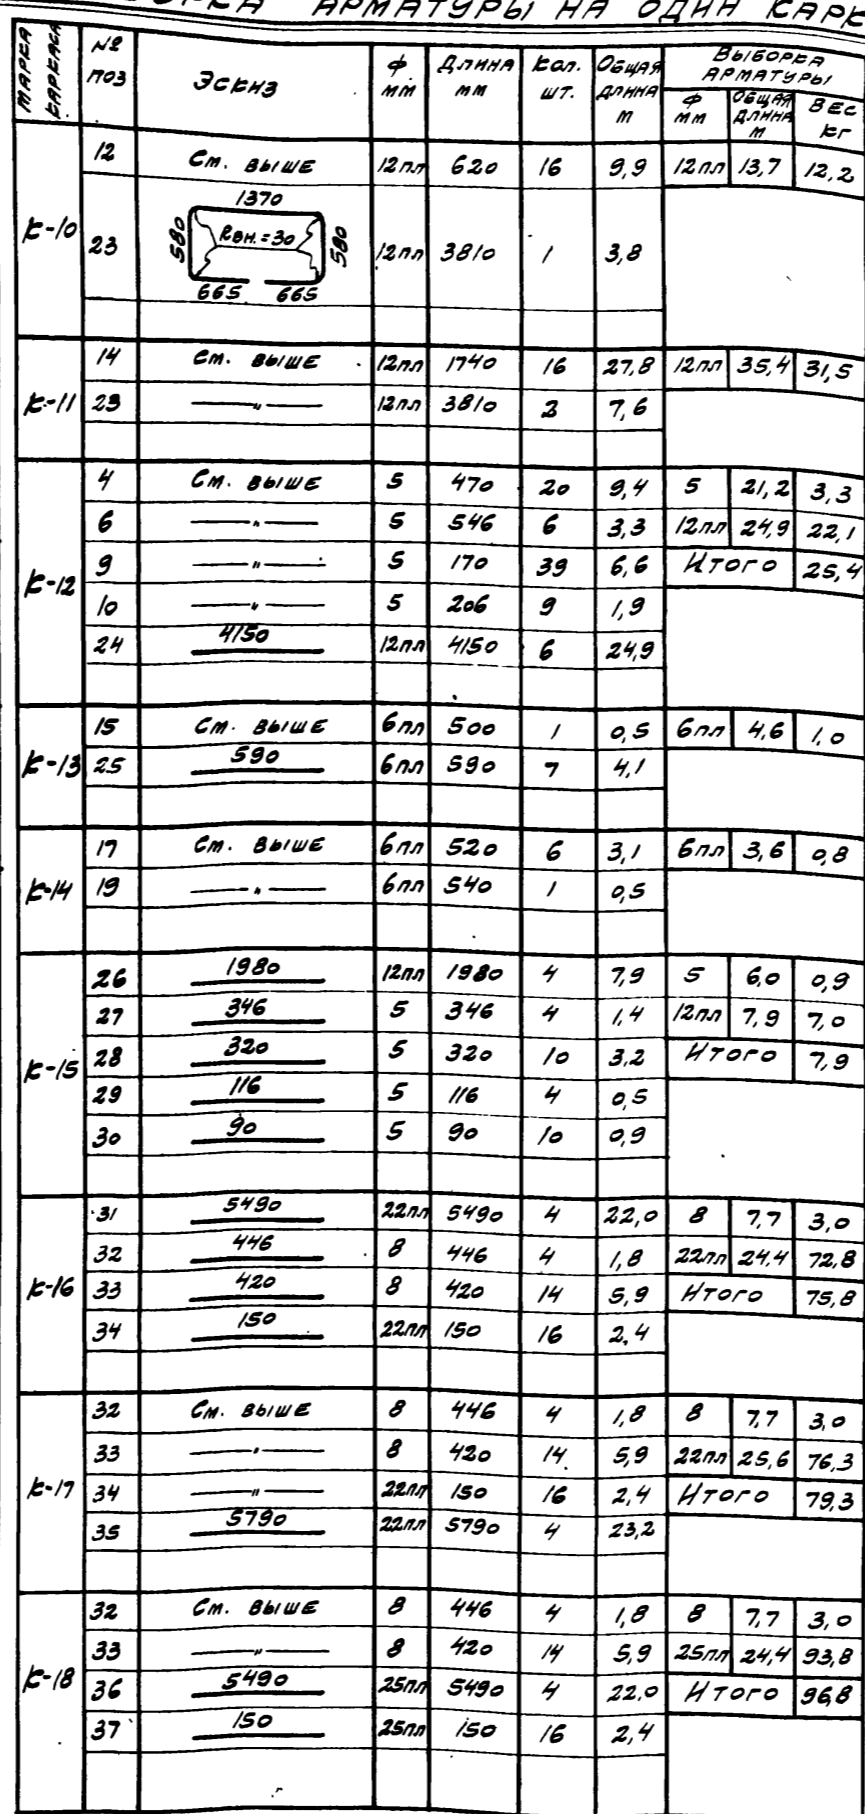 АРМАТУРЫ НА ОДИН
МАРКА КАРКАСА № ПОЗ ЭСКИЗ ф мм ДЛИНА мм КОЛ. ШТ. ОБЩАЯ ДЛИНА м ВЫБОРКА АРМАТУРЫ
ф мм ОБЩАЯ ДЛИНА м ВЕС КГ
К-10
12 См. ВЫШЕ 12пл 620 16 9,9 12пл 13,7 12,2
1370
23 580 Rвн.=30 580 12пл 3810 1 3,8
665 665
К-11
14 См. ВЫШЕ 12пл 1740 16 27,8 12пл 35,4 31,5
23 —"— 12пл 3810 2 7,6
К-12
4 См. ВЫШЕ 5 470 20 9,4 5 21,2 3,3
6 —"— 5 546 6 3,3 12пл 24,9 22,1
9 —"— 5 170 39 6,6 ИТОГО 25,4
10 —"— 5 206 9 1,9
24 4150 12пл 4150 6 24,9
К-13
15 См. ВЫШЕ 6пл 500 1 0,5 6пл 4,6 1,0
25 590 6пл 590 7 4,1
К-14
17 См. ВЫШЕ 6пл 520 6 3,1 6пл 3,6 0,8
19 —"— 6пл 540 1 0,5
К-15
26 1980 12пл 1980 4 7,9 5 6,0 0,9
27 346 5 346 4 1,4 12пл 7,9 7,0
28 320 5 320 10 3,2 ИТОГО 7,9
29 116 5 116 4 0,5
30 90 5 90 10 0,9
К-16
31 5490 22пл 5490 4 22,0 8 7,7 3,0
32 446 8 446 4 1,8 22пл 24,4 72,8
33 420 8 420 14 5,9 ИТОГО 75,8
34 150 22пл 150 16 2,4
К-17
32 См. ВЫШЕ 8 446 4 1,8 8 7,7 3,0
33 —"— 8 420 14 5,9 22пл 25,6 76,3
34 —"— 22пл 150 16 2,4 ИТОГО 79,3
35 5790 22пл 5790 4 23,2
К-18
32 См. ВЫШЕ 8 446 4 1,8 8 7,7 3,0
33 —"— 8 420 14 5,9 25пл 24,4 93,8
36 5490 25пл 5490 4 22,0 ИТОГО 96,8
37 150 25пл 150 16 2,4